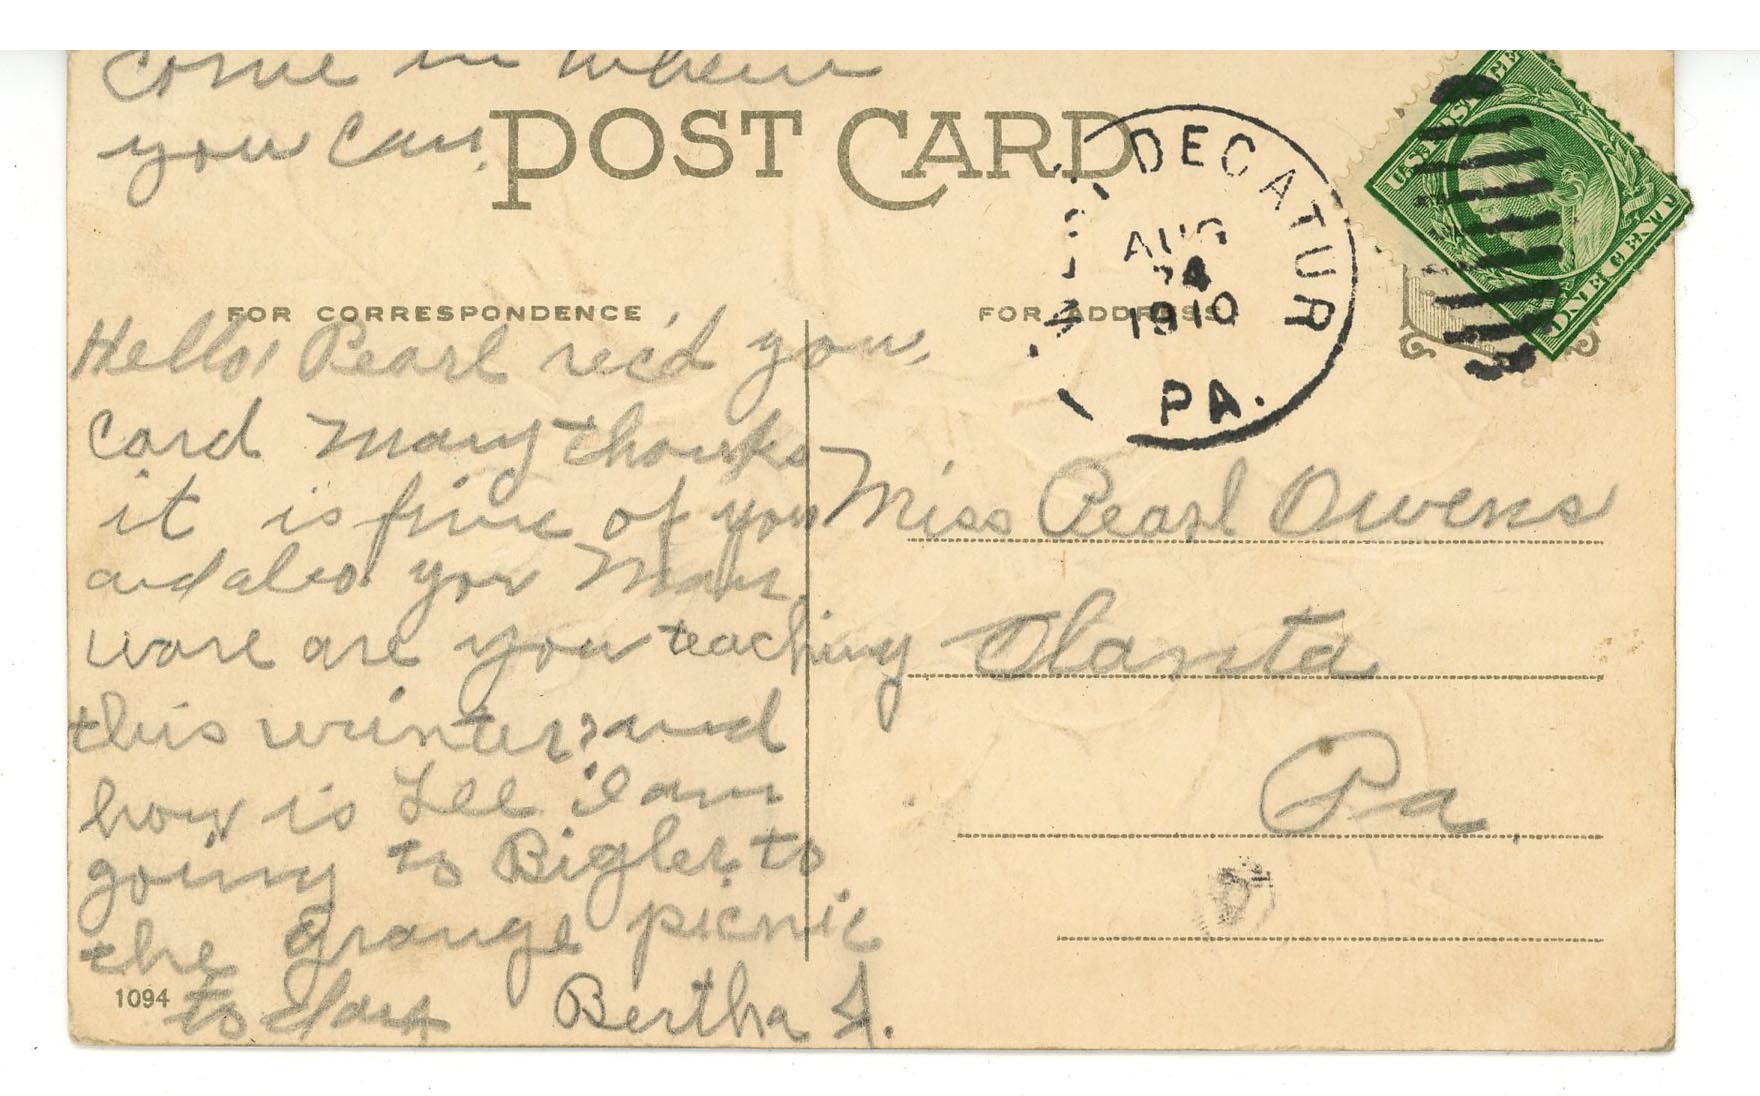 come in when
you can.
POST CARD
WEST DECATUR
AUG
24
1910
PA.
U.S. POSTAGE
ONE CENT
FOR CORRESPONDENCE
FOR ADDRESS
Hello! Pearl rec'd you
card many thanks
it is fine of you
and also your Man.
ware are you teaching
this winter? and
how is Lee I am
going to Bigler to
the grange picnic
to day Bertha
1094
Miss Pearl Owens
Olanta
Pa.